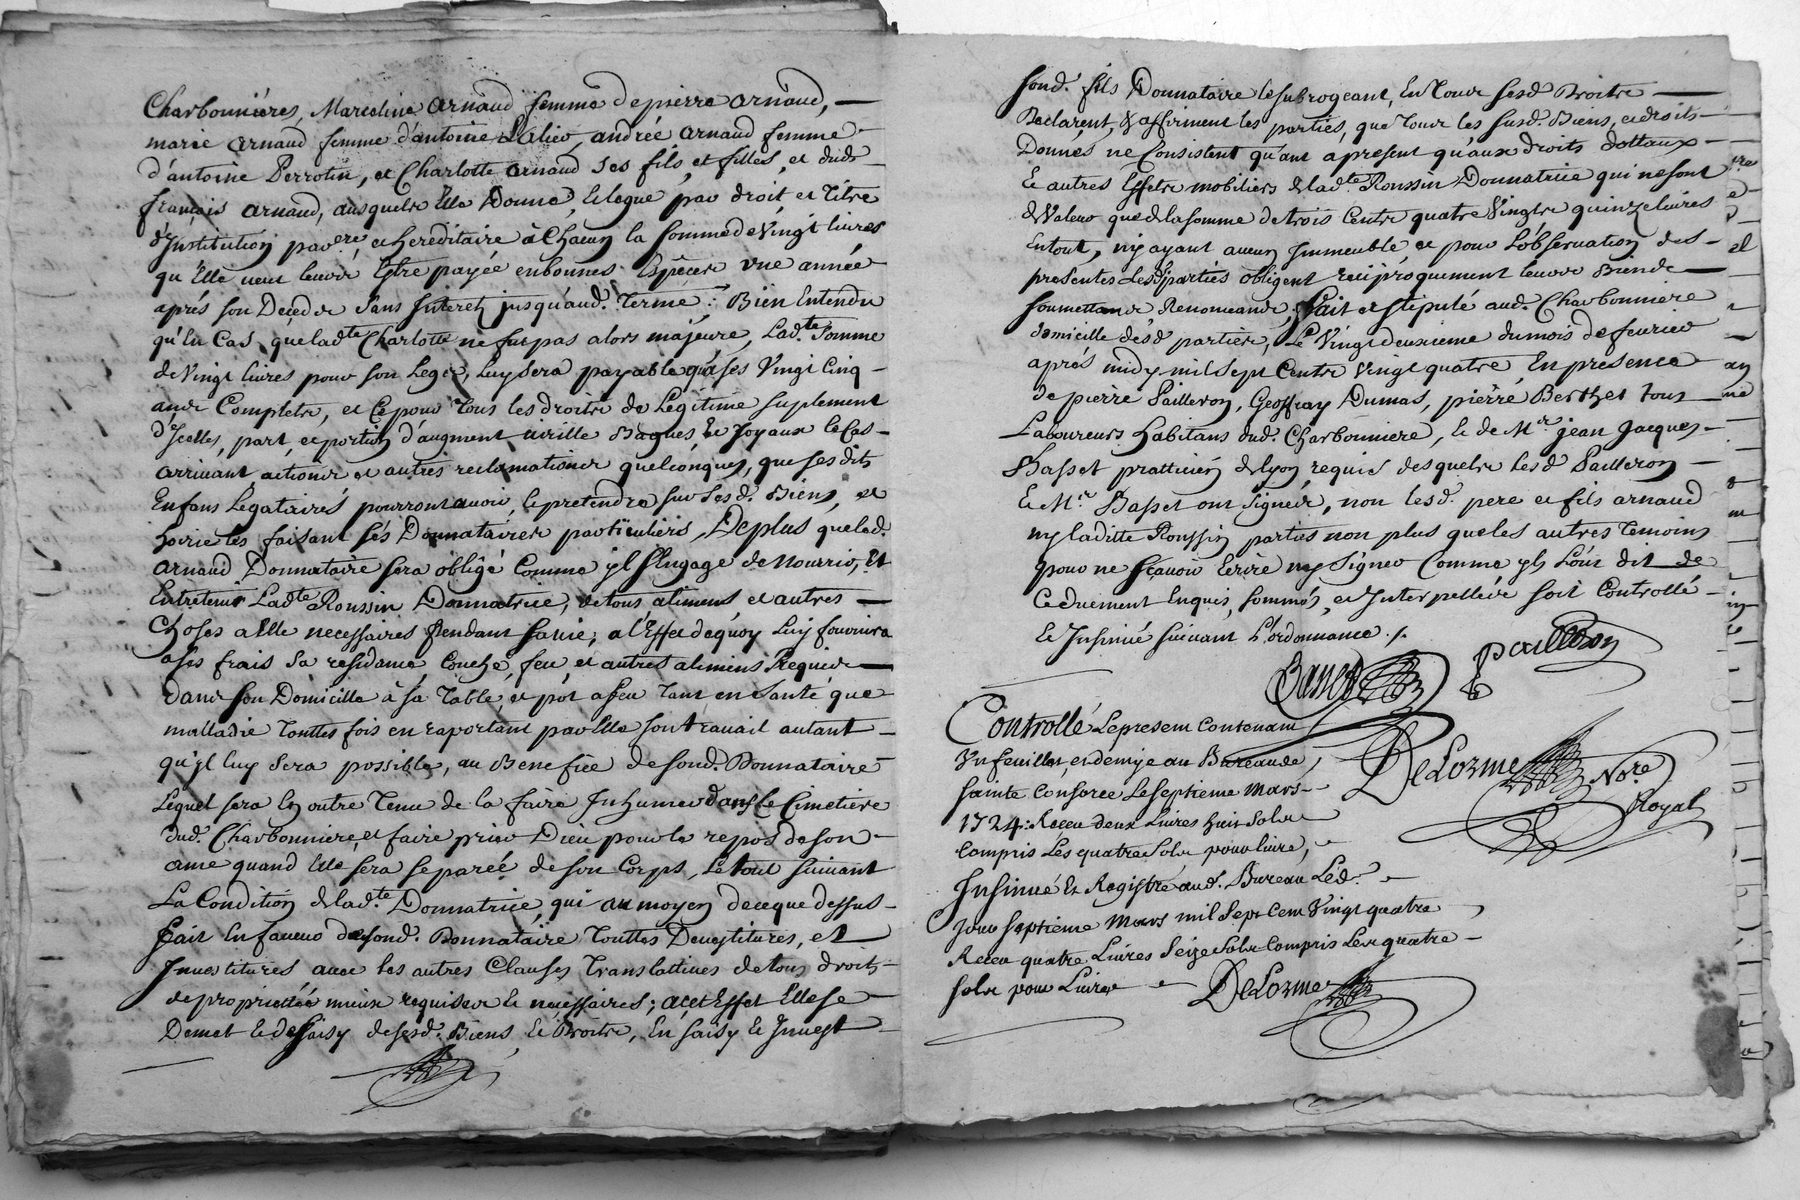 Charbonniéres, Marceline arnaud femme de pierre arnaud,
marie arnaud femme d'antoine andrée arnaud femme
d'antoine Perrotin, et Charlotte arnaud ses fils, et filles, et dud.
françois arnaud, ausquels Elle Donne, et legue par droit, et titre
d'Institution par.re et hereditaire à Chacun la somme de vingt livres
qu'Elle veut leur Estre payée en bonnes Espèces une année
aprés son Deceds sans Interets jusqu'aud. Terme; Bien Entendu
qu'En Cas que lad.te Charlotte ne fut pas alors majeure, Lad.te somme
de vingt livres pour son Legs, Luy sera payable qu'à ses Vingt Cinq
ans Complets, et Ce pour tous les droits de Legitime suplement
d'Icelles, part, et portion d'augment virille Bagues, et Joyaux le Cas
arrivant, actions et autres reclamations quelconques, que ses dits
Enfans Legataires pourront avoir, et pretendre sur sesd. Biens, et
hoirie les faisant ses Donnataires particuliers, De plus que led.
arnaud Donnataire sera obligé Comme jl s'Engage de nourrir, Et
Entretenir Lad.te Roussin Donnatrice, de tous alimens, et autres
Choses a Elle necessaires Pendant sa vie; a l'Effet de quoy Luy fournira
a ses frais sa residance, Couche, feu, et autres alimens Requis
dans son Domicille à sa Table, et pot a feu tant en santé que
malladie touttes fois en raportant par Elle son travail autant
qu'jl luy sera possible, au Benefice de sond. Donnataire
Lequel sera En outre Tenu de la faire Inhumer dans le Cimetiere
dud. Charbonniere, et faire prier Dieu pour le repos de son
ame quand Elle sera separée de son Corps, Le tout suivant
La Condition de lad.te Donnatrice, qui au moyen de ce que dessus
fait En faveur de sond. Donnataire Touttes Devestitures, et
Investitures avec les autres Clauses Translatives de tous droits
de proprietée mieux requises et necessaires; a cet Effet Elle se
Demet et dessaisy de sesd. Biens, et Droits, En saisy et Invest
sond. fils Donnataire le subrogeant, En Tous sesd. Droits
Declarent, & affirment les parties, que Tous les susd. Biens, et droits
Donnés ne Consistent qu'ant a present qu'aux droits dottaux
Et autres Effets mobiliers de lad.te Roussin Donnatrice qui ne sont
de Valeur que de la somme de trois Cents quatre Vingts quinze livres
En tout, n'y ayant aucun Immeuble, et pour L'observation des
presentes Lesd. parties obligent reciproquement leurs Biens
soumettans, Renonceans, Fait et stipulé aud. Charbonniere
domicille desd. parties, Le Vingt deuxieme du mois de fevrier
aprés midy mil sept Cents vingt quatre, En presence
de pierre Pailleron, Geoffray Dumas, pierre Berthet tous
Laboureurs habitans dud. Charbonniere, et de M.r jean Jacques
Basset pratticien de lyon requis desquels lesd. Pailleron
et M.r Basset ont signés, non lesd. pere et fils arnaud
ny laditte Roussin parties non plus que les autres temoins
pour ne sçavoir Ecrire ny signer Comme jls L'ont dit de
Ce duement Enquis, sommés, et Interpellés soit Controllé
Et Insinué suivant L'ordonnance ./.
Basset Pailleron
Controllé Le present Contenant
Un feuillet, et demye au Bureau de
sainte Consorce Le septieme Mars
1724: Receu deux Livres huit sols
Compris Les quatre sols pour livre,
DeLorme No.re
Royal
Insinué Et Registré aud. Bureau Led.
Jour septieme Mars mil sept Cent Vingt quatre
Receu quatre Livres seize sols Compris Les quatre
sols pour Livre
DeLorme